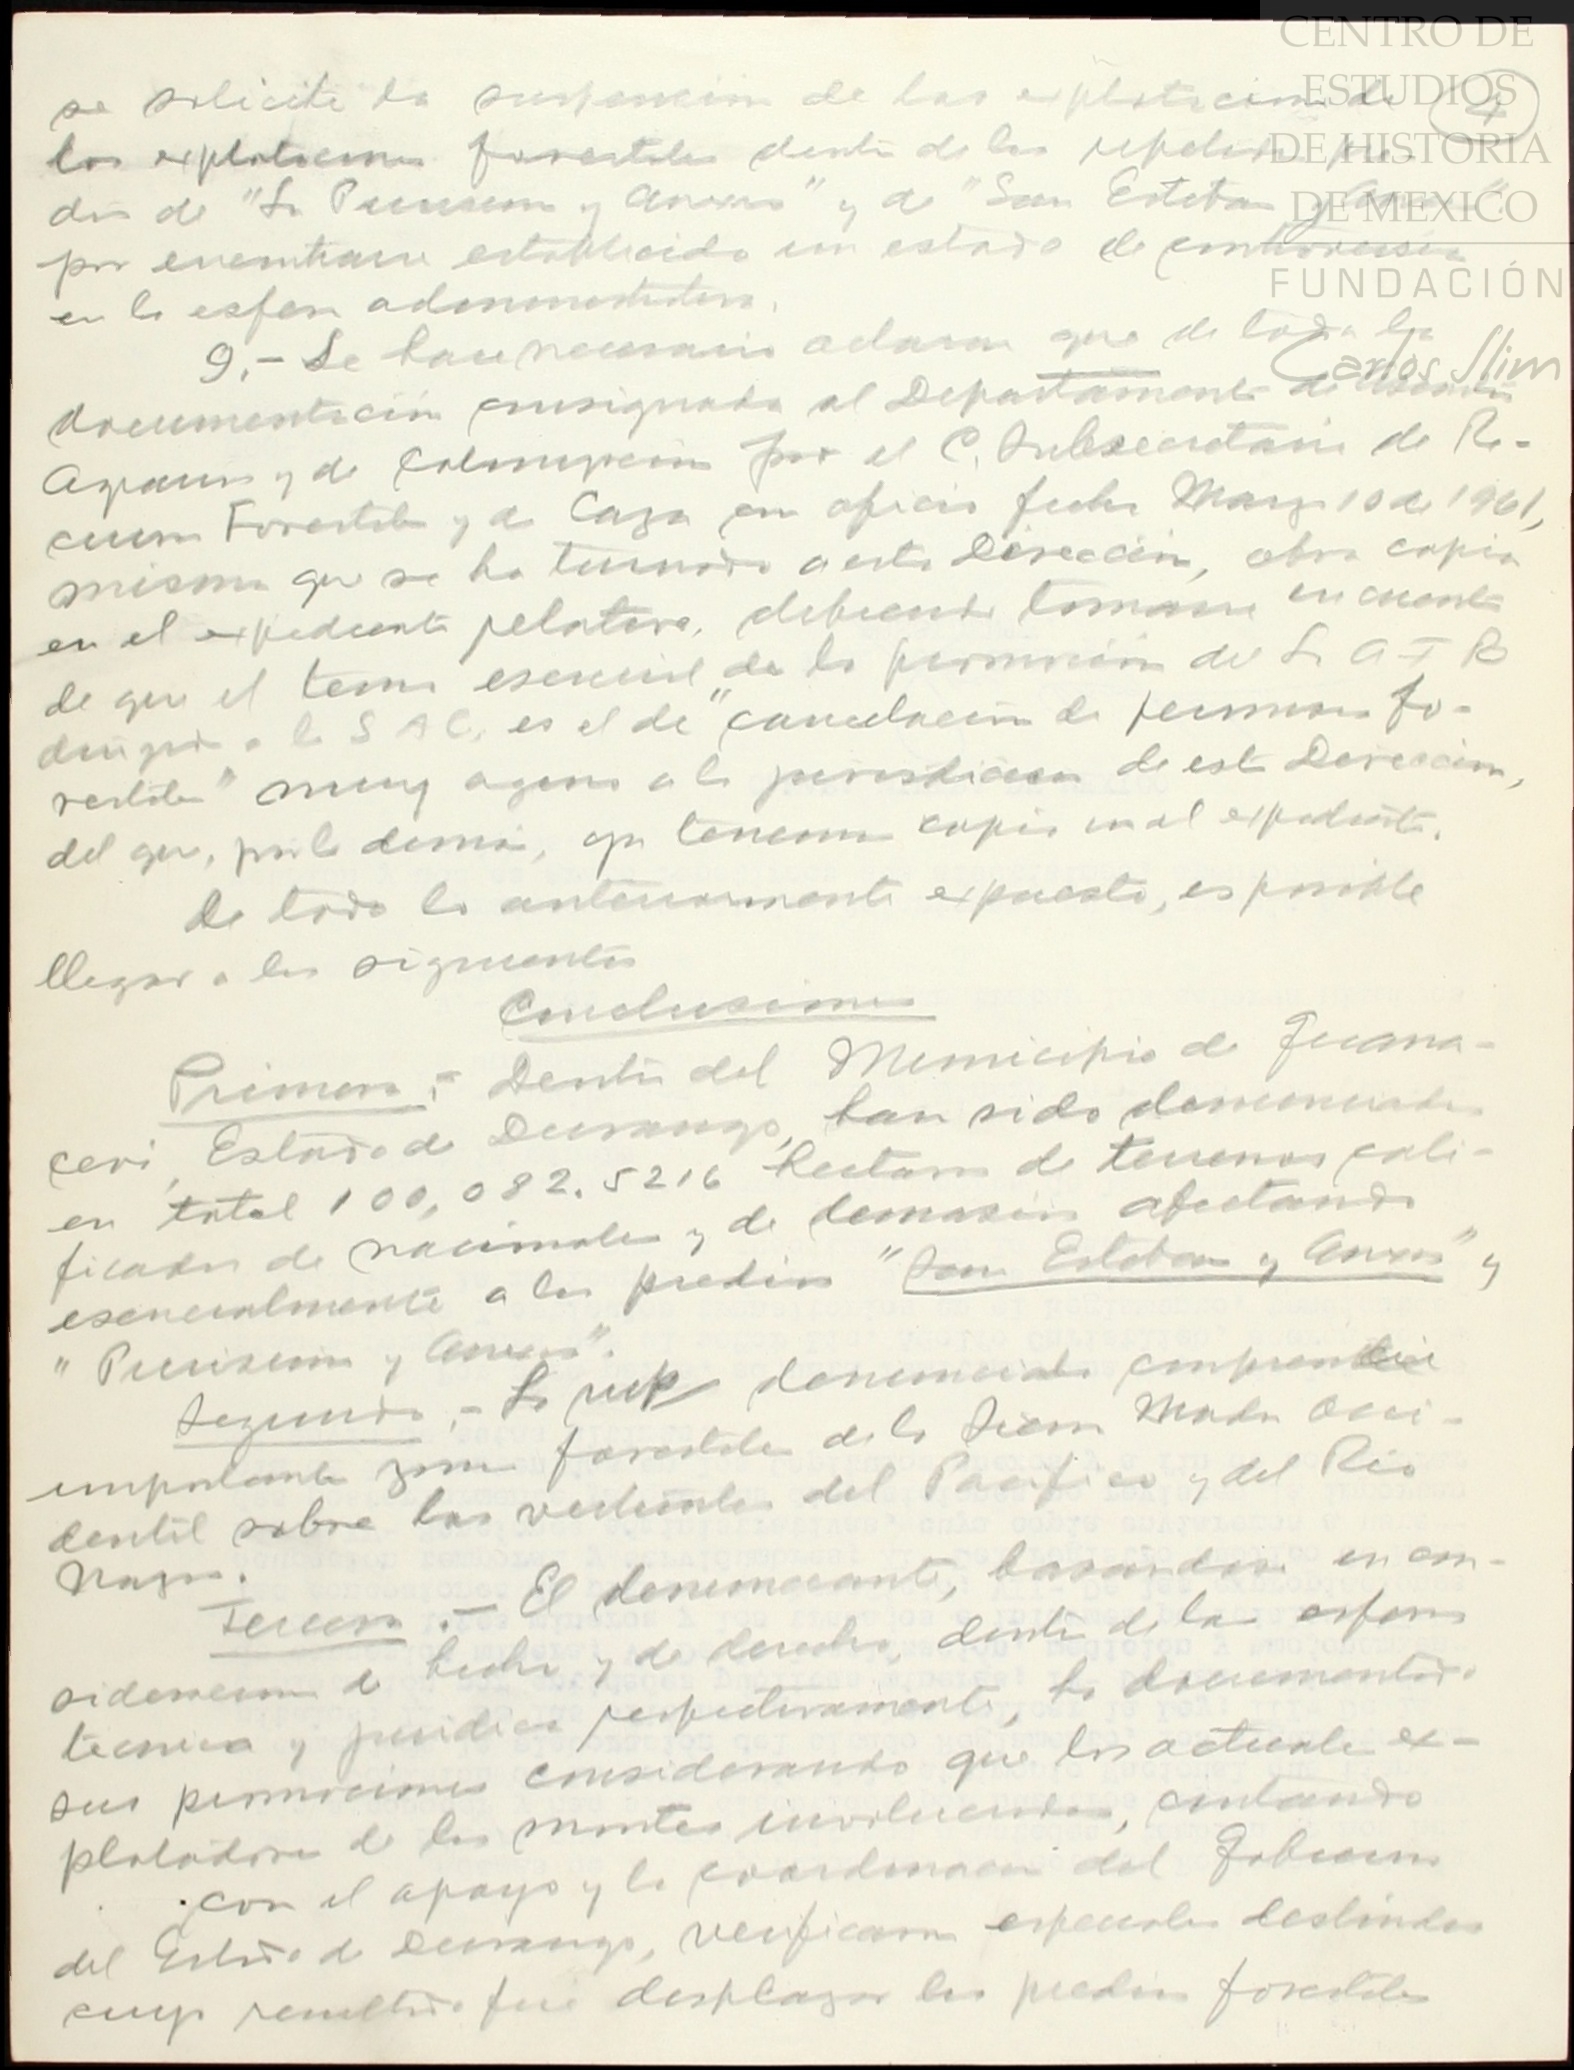 CENTRO DE
ESTUDIOS
DE HISTORIA
DE MEXICO
FUNDACIÓN
Carlos Slim
4
se solicite la suspension de las explotaciones de
las explotaciones forestales dentro de los repetidos pre-
dios de "La Purisima y Anexos" y de "San Esteban y Anexos"
por encontrarse establecido un estado de controversia
en la esfera administrativa.
9.- Se hace necesario aclarar que de toda la
documentación consignada al Departamento de Asuntos
Agrarios y de Colonización por el C. Subsecretario de Re-
cursos Forestales y de Caza en oficio fecha Marzo 10 de 1961,
misma que se ha turnado a esta Dirección, obra copia
en el expediente relativo, debiendo tomarse en cuenta
de que el tema esencial de la promoción de
dirigida a la S A G, es el de "cancelación de permisos fo-
restales" muy ageno a la jurisdiccion de esta Dirección,
del que, por lo demás, ya tenemos copia en el expediente.
De todo lo anteriormente expuesto, es posible
llegar a las siguientes
Conclusiones
Primera.- Dentro del Municipio de Guana-
cevi, Estado de Durango, han sido denunciadas
en total 100,082.5216 hectareas de terrenos cali-
ficados de nacionales y de demasias afectando
esencialmente a los predios "San Esteban y Anexos" y
"Purisima y Anexos".
Segunda.- La denunciada comprende
importante zona forestal de la Sierra Madre Occi-
dental sobre las vertientes del Pacifico y del Rio
Nazas.
Tercera.- El denunciante, basandose en con-
sideraciones de hecho y de derecho, dentro de las esferas
tecnica y juridica respectivamente, ha documentado
sus promociones considerando que los actuales ex-
plotadores de los montes involucrados, contando
con el apoyo y la coordinacion del Gobierno
del Estado de Durango, verificaron especiales deslindes
cuyo resultado fue desplazar los predios forestales